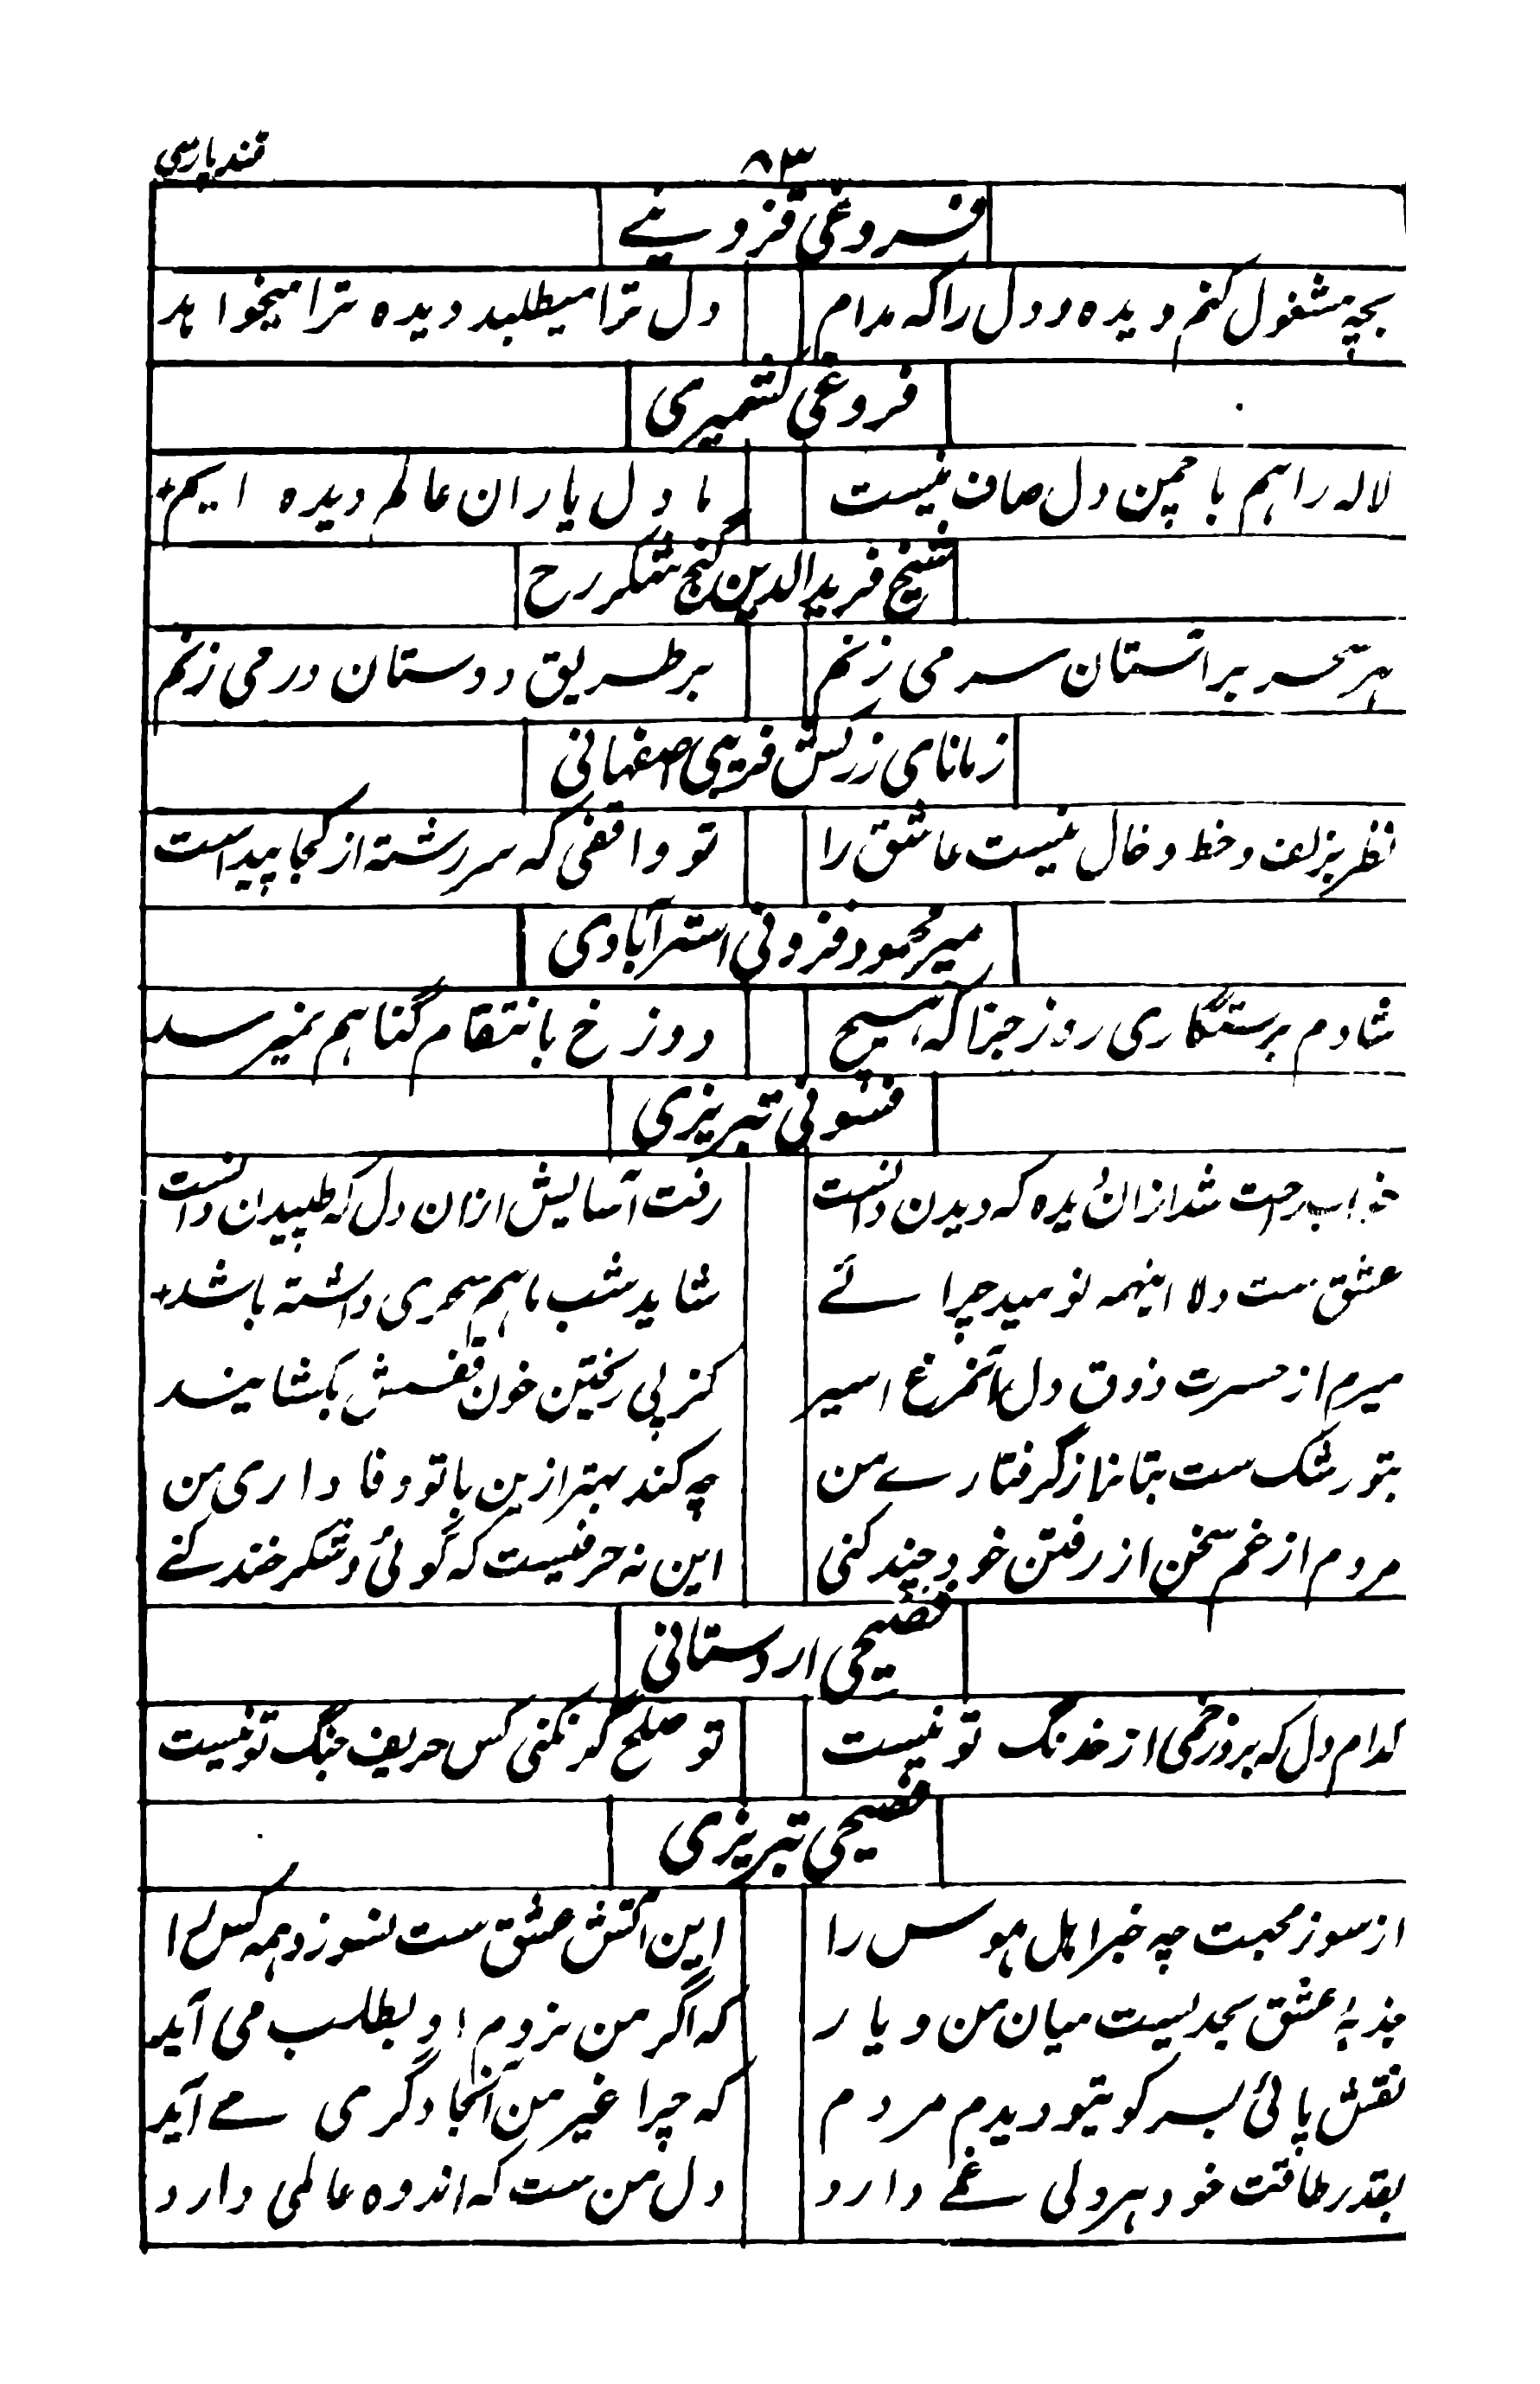 ۸۳ قند پارسی
فروغی قزوینے
بچه مشغول کنم دیده و دل را که مدام دل ترا میطلبد دیده ترا میخواهد
فروغی کشمیری
لاله را هم با چمن دل صاف نیست ما دل یاران عالم دیده ایم
شیخ فریدالدین گنج شکر رح
هر سحر بر آستان سر می زنم بر طریق دوستان در می زنم
زمانای زرکش فریبی اصفهانی
نظر بزلف و خط و خال نیست عاشق را تو واقفی که سر رشته از کجا پیداست
میر محمود فزونی استرآبادی
شادم برستگاری روز جزا که هیچ دوزخ بانتقام گناهم نمیرسد
فسونی تبریزی
خواب راحت شد ازان دیده که دیدن دانست رفت آسایش ازان دل که طپیدن دانست
عشق ست دلا اینهمه نومید چرائے شاید شب ما هم سحری داشته باشد
میرم از حسرت ذوق دل آنمرغ اسیر کز پی ریختن خون قفسش بکشایند
بتو رشک ست بتا نماز گرفتارے من چه کند بهتر ازین با تو وفا داری من
مردم از غم سخن از رفتن خود چند کنی این نه حرفیست که گوئی و شکر خند کنے
فصیحی اردستانی
کدام دل که برو زخمی از خدنگ تو نیست تو صلح گر نکنی کس حریف جنگ تو نیست
فصیحی تبریزی
از سوز محبت چه خبر اهل هوس را این آتش عشق ست نسوزد همه کس را
جذبهٔ عشق بحدیست میان من و یار که اگر من نروم او بطلب می آید
نقش پائی بسر کویتو دیدم مردم که چرا غیر من آنجا دگری مے آید
بقدر طاقت خود هر دلی غمے دارد دل من ست که اندوه عالمی دارد